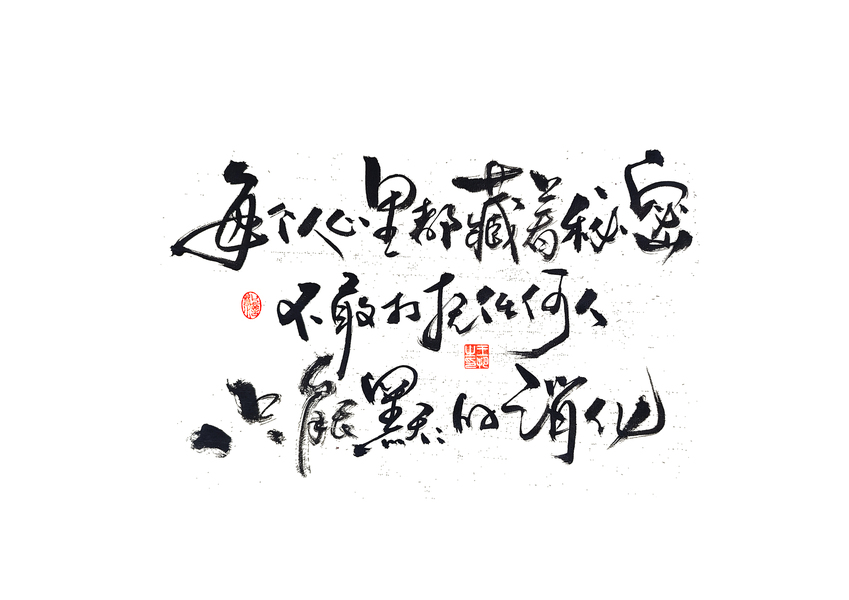 每个人心里都藏着秘密
不敢打扰任何人
只能默默的消化